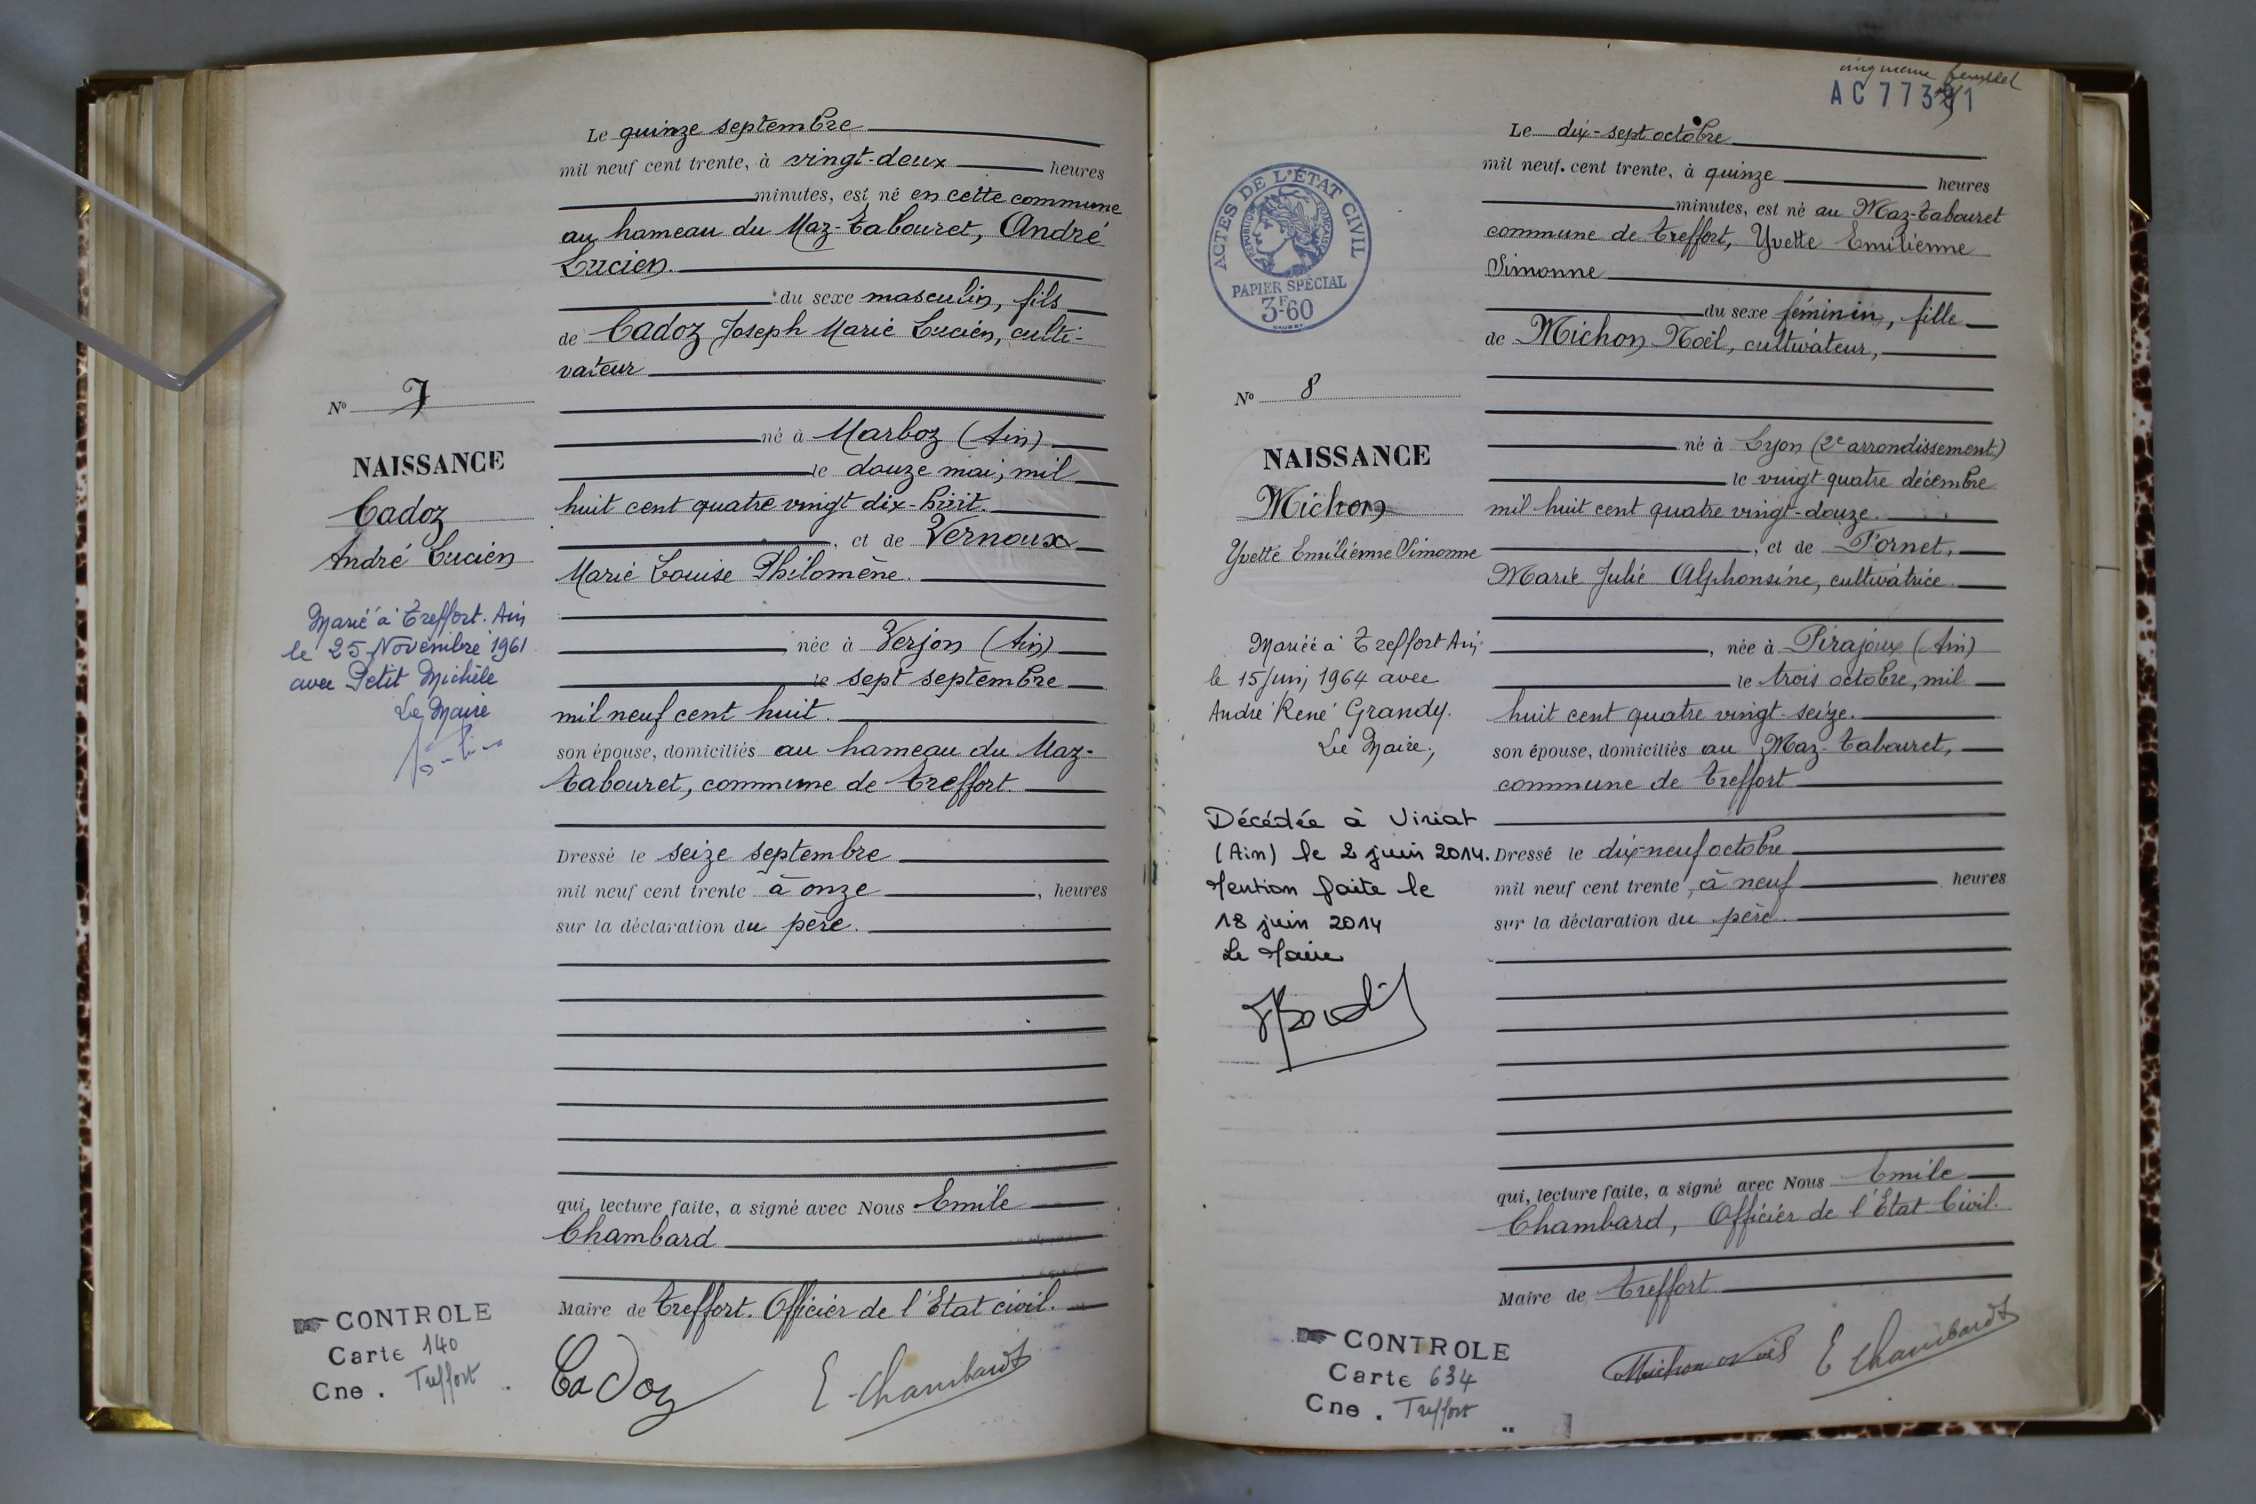 Le quinze septembre
mil neuf cent trente, à vingt-deux heures
minutes, est né en cette commune
au hameau du Maz-Tabouret, André
Lucien.
du sexe masculin, fils
de Cadoz Joseph Marie Lucien, culti-
vateur
né à Marboz (Ain)
le douze mai, mil
huit cent quatre vingt dix-huit.
, et de Vernoux
Marie Louise Philomène.
née à Verjon (Ain)
le sept septembre
mil neuf cent huit.
son épouse, domiciliés au hameau du Maz-
Tabouret, commune de Treffort.
Dressé le seize septembre
mil neuf cent trente à onze, heures
sur la déclaration du père.
qui, lecture faite, a signé avec Nous Emile
Chambard
Maire de Treffort. Officier de l'Etat civil.
Cadoz E Chambard
N° 7
NAISSANCE
Cadoz
André Lucien
Marié à Treffort. Ain
le 25 Novembre 1961
avec Petit Michèle
Le Maire
CONTROLE
Carte 140
Cne. Treffort
AC 77391
feuillet
ACTES DE L'ÉTAT CIVIL
RÉPUBLIQUE FRANÇAISE
PAPIER SPÉCIAL
3F60
Le dix-sept octobre
mil neuf cent trente, à quinze heures
minutes, est né au Maz-Tabouret
commune de Treffort, Yvette Emilienne
Simonne
du sexe féminin, fille
de Michon Noël, cultivateur,
né à Lyon (2e arrondissement)
le vingt-quatre décembre
mil huit cent quatre vingt-douze.
, et de Pornet,
Marie Julie Alphonsine, cultivatrice
, née à Pirajoux (Ain)
le trois octobre, mil
huit cent quatre vingt-seize.
son épouse, domiciliés au Maz-Tabouret,
commune de Treffort
Dressé le dix-neuf octobre
mil neuf cent trente, à neuf heures
sur la déclaration du père.
qui, lecture faite, a signé avec Nous Emile
Chambard, Officier de l'Etat Civil.
Maire de Treffort.
Michon Noël E Chambard
N° 8
NAISSANCE
Michon
Yvette Emilienne Simonne
Mariée à Treffort Ain
le 15 Juin 1964 avec
André René Grandy.
Le Maire,
Décédée à Viriat
(Ain) le 2 juin 2014.
Mention faite le
18 juin 2014
Le Maire
CONTROLE
Carte 634
Cne. Treffort